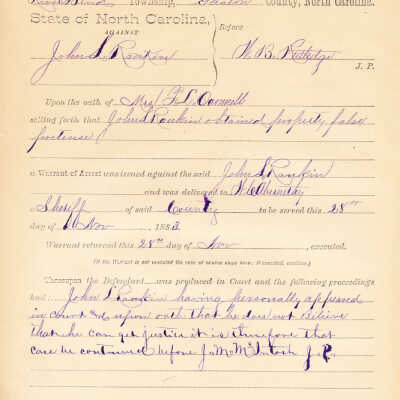 River Bend Township, Gaston County, North Carolina.
State of North Carolina,
AGAINST
John L Rankin
Before
W. B. Rutledge
J. P.
Upon the oath of Mrs F. L.
setting forth that John L Rankin obtained property, false
pretense (
a Warrant of Arrest was issued against the said John L Rankin
and was delivered to
Sheriff of said County to be served this 28th
day of Nov 1883
Warrant returned this 28th day of Nov, executed.
(If the Warrant is not executed the case of course stops here; if executed, continue.)
Thereupon the Defendant was produced in Court and the following proceedings
had: John L Rankin having personally appeared
in court & upon oath that he does not believe
that he can get justice it is therefore that
case be continued before J. M. McIntosh J. P.